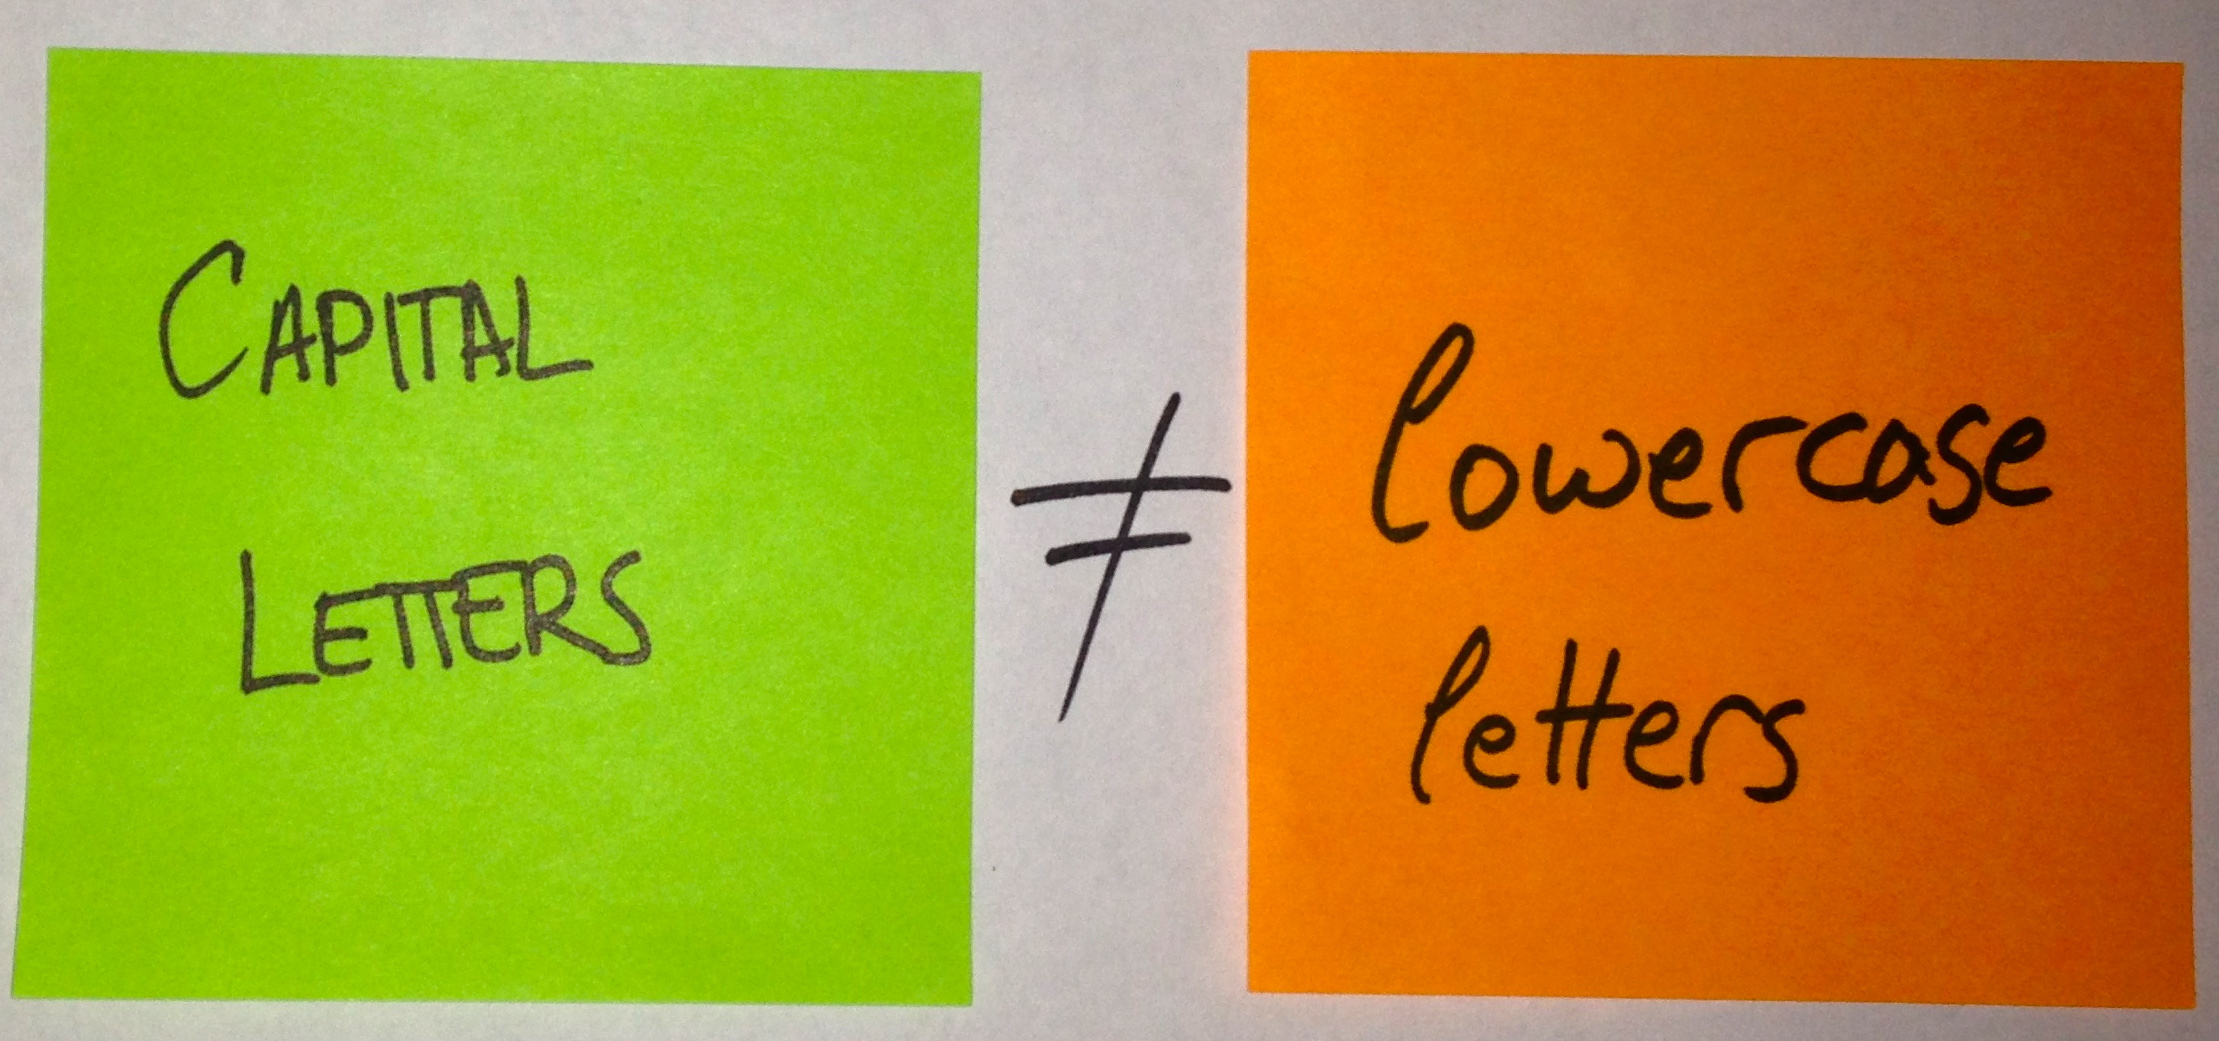 CAPITAL
LETTERS
≠
lowercase
letters